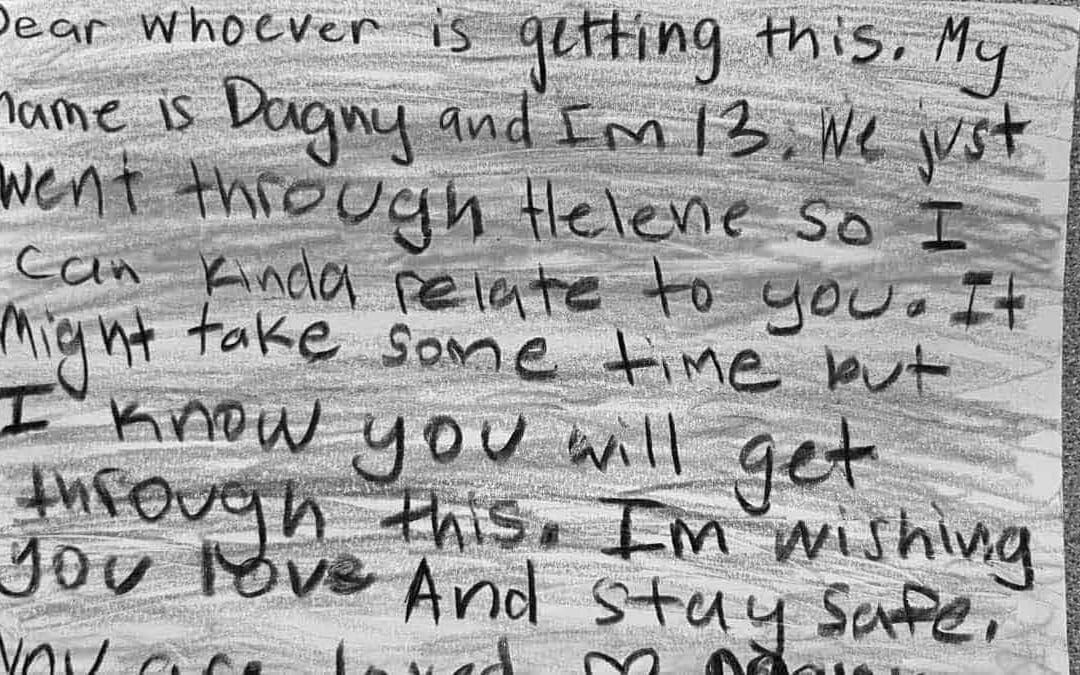 Dear whoever is getting this. My
name is Dagny and Im 13. We just
went through Helene so I
can kinda relate to you. It
Might take some time but
I know you will get
through this. Im wishing
you love And stay safe.
You are loved ♡ Dagny